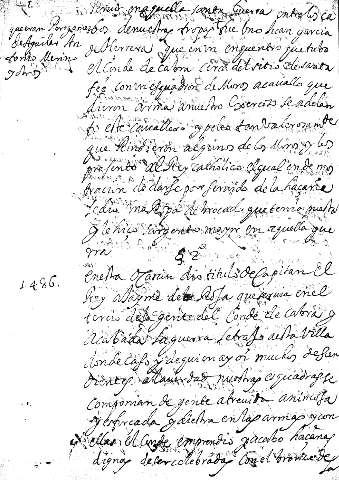 que eran Pompeyo
de Aguilar An
tonio Merino
y otros
en aquella santa guerra entre los ca
bos de nuestras tropas fue uno Juan garcia
de Herrera que en un encuentro que tubo
el Conde de Cabra cerca del sitio de santa
fee con un esquadron de Moros acavallo que
dieron arma a nuestro Exercito se adelan
to este cavallero y peleo tan valerosamte
que Rindieron algunos de los Moros y los
presento al Rey catholico el qual en demos
tracion de darse por servido de la hacaña
le dio una Ropa de brocado que tenia puesta
y le hico sargento mayor en aquella gue
rra
§ 2º
1486.
En esta ocasion dio titulo de Capitan El
Rey a Jayme de la Rosa que servia en el
tercio de la gente del Conde de Cabra y
acabada la guerra se traxo a esta Villa
donde caso y de quien ay oi muchos descen
dientes a la verdad nuestras esquadras se
componian de gente atrevida animosa
y esforcada y diestra en las armas y con
ellas el Conde emprendio y acabo hacañas
dignas de ser celebradas con el bronce de